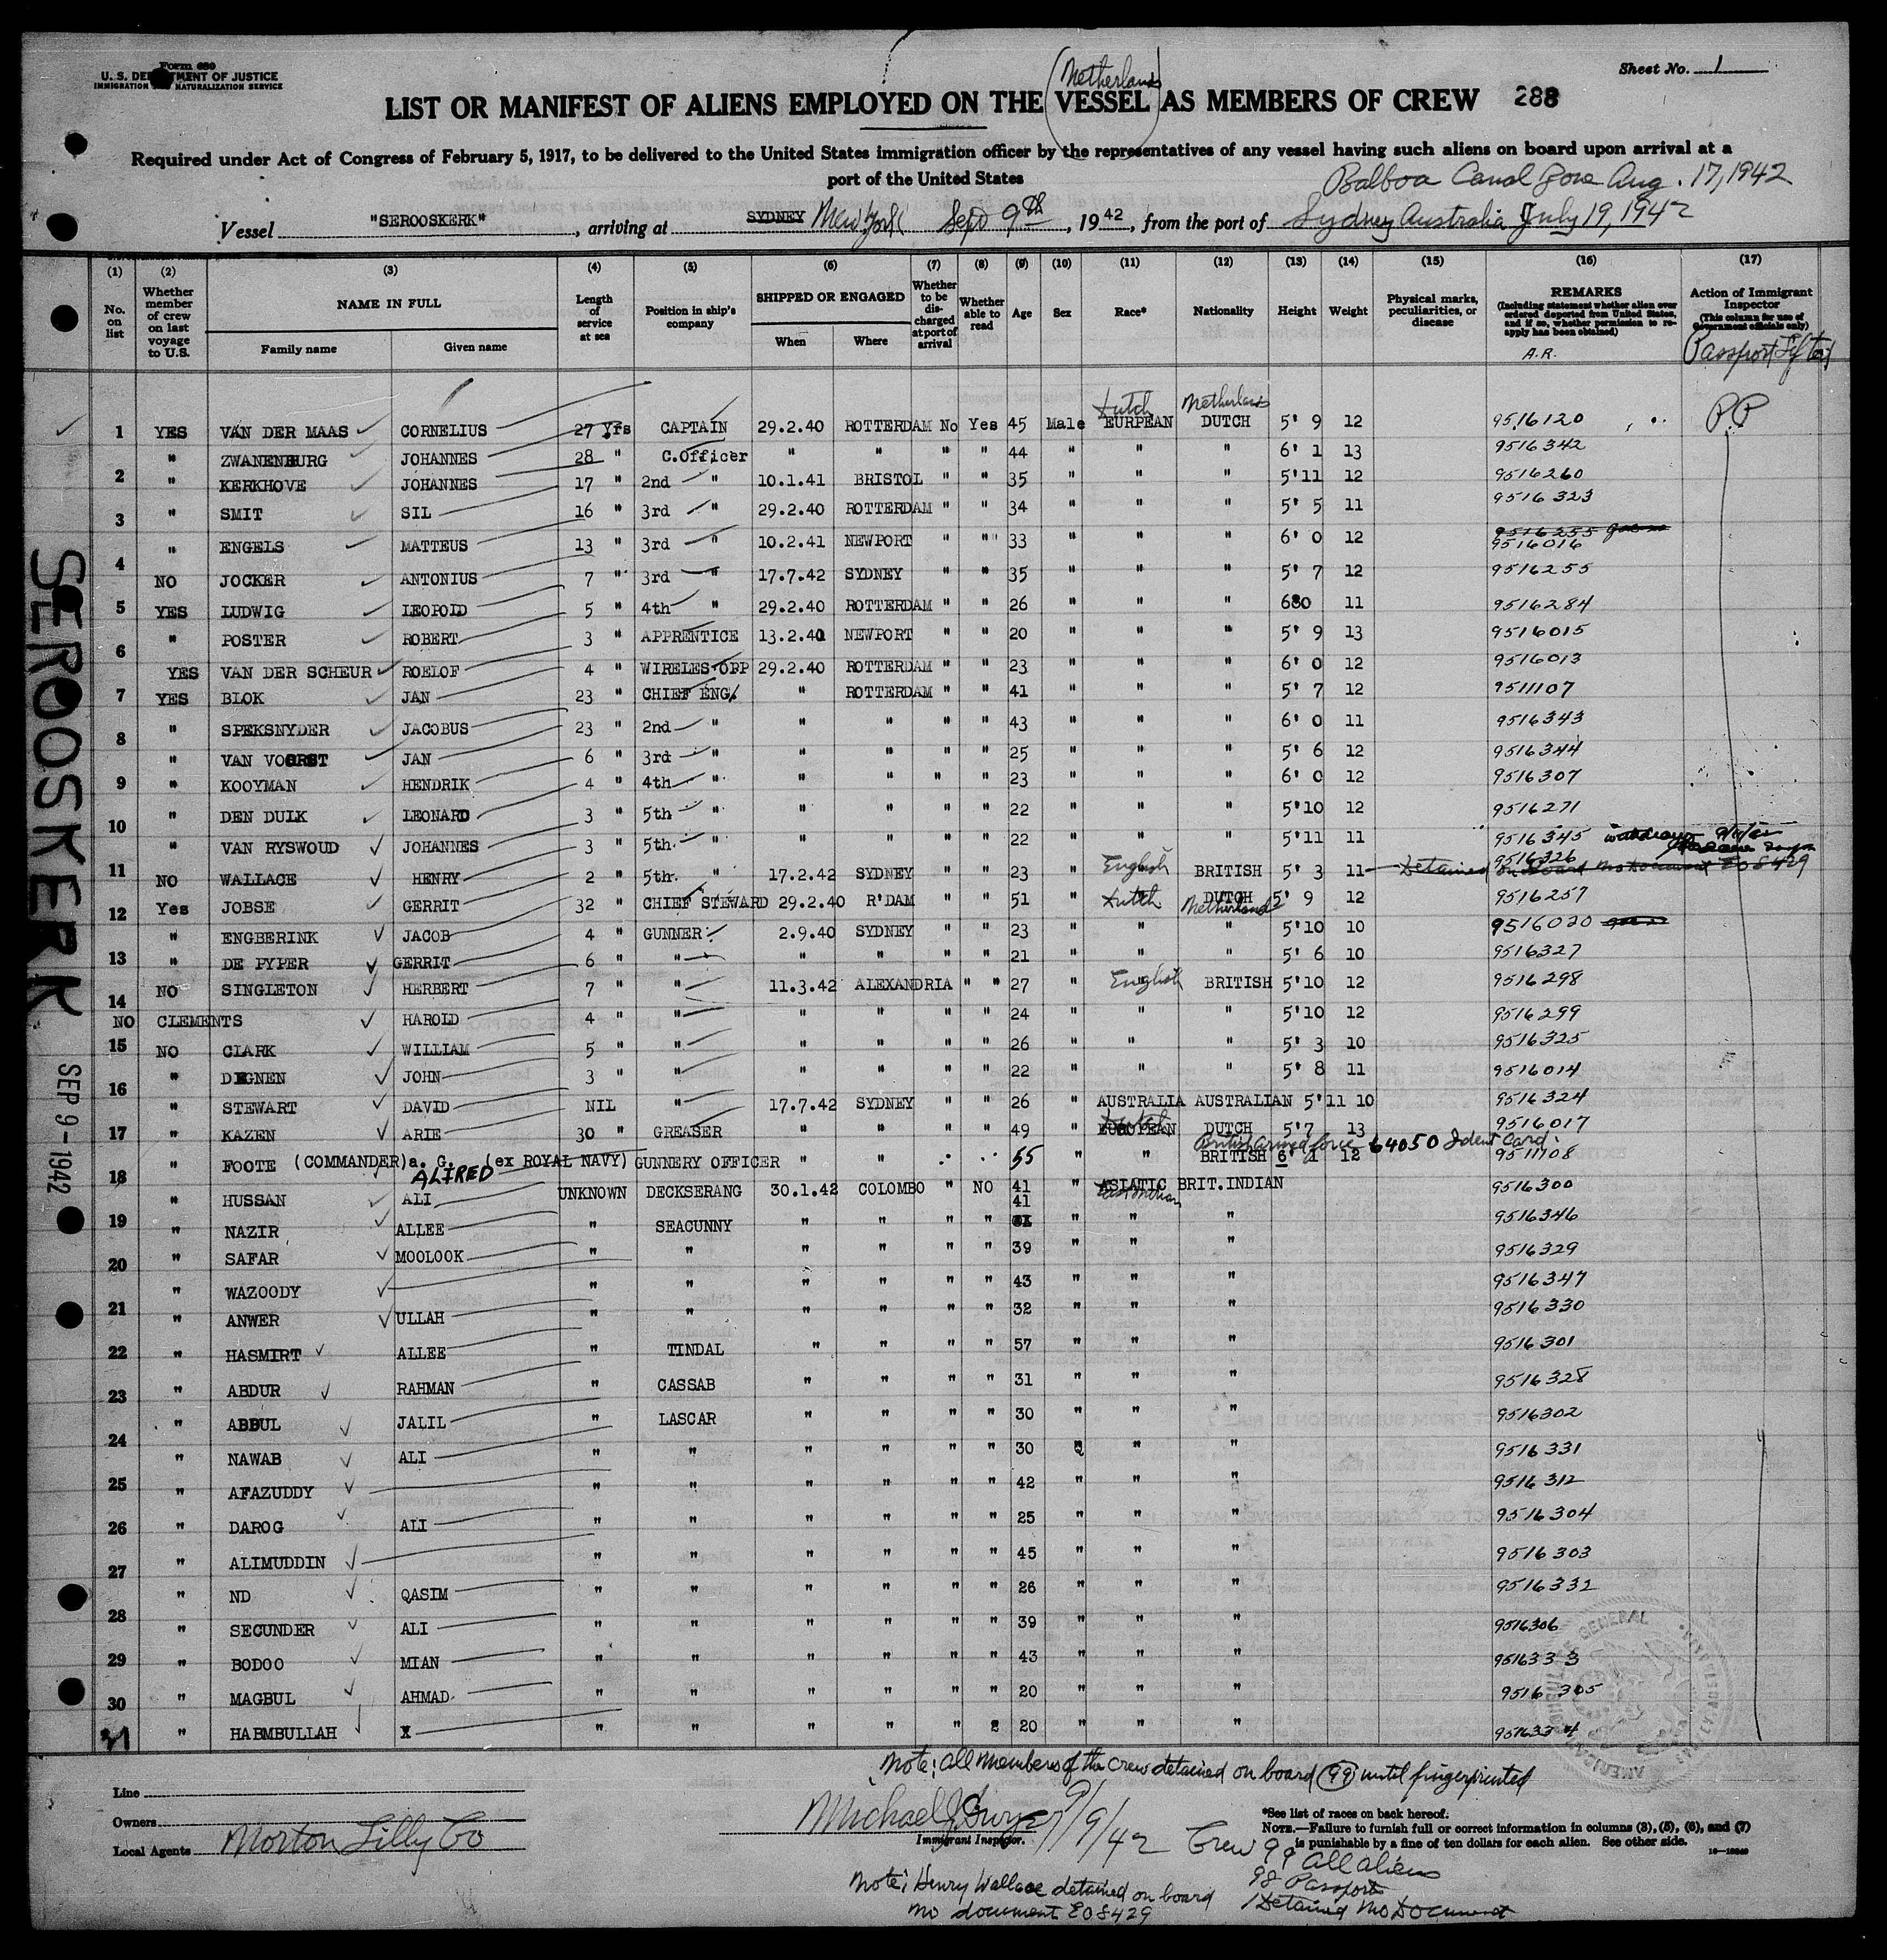 Form 680
U. S. DEPARTMENT OF JUSTICE
IMMIGRATION AND NATURALIZATION SERVICE
Sheet No. 1
(Netherlands)
LIST OR MANIFEST OF ALIENS EMPLOYED ON THE VESSEL AS MEMBERS OF CREW 288
Required under Act of Congress of February 5, 1917, to be delivered to the United States immigration officer by the representatives of any vessel having such aliens on board upon arrival at a
port of the United States
Balboa Canal Zone Aug. 17, 1942
Vessel "SEROOSKERK", arriving at SYDNEY New York Sept 9th, 1942, from the port of Sydney Australia July 19, 1942
(1) (2) (3) (4) (5) (6) (7) (8) (9) (10) (11) (12) (13) (14) (15) (16) (17)
No. on list
Whether member of crew on last voyage to U.S.
NAME IN FULL
Family name
Given name
Length of service at sea
Position in ship's company
SHIPPED OR ENGAGED
When
Where
Whether to be discharged at port of arrival
Whether able to read
Age
Sex
Race*
Nationality
Height
Weight
Physical marks, peculiarities, or disease
REMARKS
(Including statement whether alien ever ordered deported from United States, and if so, whether permission to reapply has been obtained)
A.R.
Action of Immigrant Inspector
(This column for use of Government officials only)
Passport
Dutch Netherlands
1 YES VAN DER MAAS CORNELIUS 27 yrs CAPTAIN 29.2.40 ROTTERDAM No Yes 45 Male EURPEAN DUTCH 5' 9 12 9516120 PP
" ZWANENBURG JOHANNES 28 " C.Officer " " " " 44 " " " 6' 1 13 9516342
2 " KERKHOVE JOHANNES 17 " 2nd " 10.1.41 BRISTOL " " 35 " " " 5'11 12 9516260
3 " SMIT SIL 16 " 3rd " 29.2.40 ROTTERDAM " " 34 " " " 5' 5 11 9516323
9516255
" ENGELS MATTEUS 13 " 3rd " 10.2.41 NEWPORT " " 33 " " " 6' 0 12 9516016
4 NO JOCKER ANTONIUS 7 " 3rd " 17.7.42 SYDNEY " " 35 " " " 5' 7 12 9516255
5 YES LUDWIG LEOPOLD 5 " 4th " 29.2.40 ROTTERDAM " " 26 " " " 680 11 9516284
6 " POSTER ROBERT 3 " APPRENTICE 13.2.40 NEWPORT " " 20 " " " 5' 9 13 9516015
YES VAN DER SCHEUR ROELOF 4 " WIRELES OPP 29.2.40 ROTTERDAM " " 23 " " " 6' 0 12 9516013
7 YES BLOK JAN 23 " CHIEF ENG. " ROTTERDAM " " 41 " " " 5' 7 12 9511107
8 " SPEKSNYDER JACOBUS 23 " 2nd " " " " " 43 " " " 6' 0 11 9516343
" VAN VOORST JAN 6 " 3rd " " " " " 25 " " " 5' 6 12 9516344
9 " KOOYMAN HENDRIK 4 " 4th " " " " " 23 " " " 6' 0 12 9516307
10 " DEN DULK LEONARD 3 " 5th " " " " " 22 " " " 5'10 12 9516271
" VAN RYSWOUD JOHANNES 3 " 5th. " " " " " 22 " " " 5'11 11 9516345
11 NO WALLACE HENRY 2 " 5th. " 17.2.42 SYDNEY " " 23 " English BRITISH 5' 3 11 9516326 Detained on Board No Document E08429
12 Yes JOBSE GERRIT 32 " CHIEF STEWARD 29.2.40 R'DAM " " 51 " Dutch DUTCH Netherlands 5' 9 12 9516257
" ENGBERINK JACOB 4 " GUNNER 2.9.40 SYDNEY " " 23 " " " 5'10 10 9516020
13 " DE PYPER GERRIT 6 " " " " " " 21 " " " 5' 6 10 9516327
14 NO SINGLETON HERBERT 7 " " 11.3.42 ALEXANDRIA " " 27 " English BRITISH 5'10 12 9516298
NO CLEMENTS HAROLD 4 " " " " " " 24 " " " 5'10 12 9516299
15 NO CLARK WILLIAM 5 " " " " " " 26 " " " 5' 3 10 9516325
16 " DEGNEN JOHN 3 " " " " " " 22 " " " 5' 8 11 9516014
" STEWART DAVID NIL " 17.7.42 SYDNEY " " 26 " AUSTRALIA AUSTRALIAN 5'11 10 9516324
17 " KAZEN ARIE 30 " GREASER " " " " 49 " EUROPEAN Dutch DUTCH 5'7 13 9516017
British armed force 64050 Ident Card.
18 " FOOTE (COMMANDER) a. G. ALFRED (ex ROYAL NAVY) GUNNERY OFFICER " " " " 55 " BRITISH 6' 1 12 9511108
" HUSSAN ALI UNKNOWN DECKSERANG 30.1.42 COLOMBO " NO 41 " ASIATIC East Indian BRIT.INDIAN 9516300
19 " NAZIR ALLEE " SEACUNNY " " " " 41 " " " 9516346
20 " SAFAR MOOLOOK " " " " " " 39 " " " 9516329
" WAZOODY " " " " " " 43 " " " 9516347
21 " ANWER ULLAH " " " " " " 32 " " " 9516330
22 " HASMIRT ALLEE " TINDAL " " " " 57 " " " 9516301
23 " ABDUR RAHMAN " CASSAB " " " " 31 " " " 9516328
24 " ABBUL JALIL " LASCAR " " " " 30 " " " 9516302
" NAWAB ALI " " " " " " 30 " " " 9516331
25 " AFAZUDDY " " " " " " 42 " " " 9516312
26 " DAROG ALI " " " " " " 25 " " " 9516304
27 " ALIMUDDIN " " " " " " 45 " " " 9516303
" ND QASIM " " " " " " 26 " " " 9516332
28 " SECUNDER ALI " " " " " " 39 " " " 9516306
29 " BODOO MIAN " " " " " " 43 " " " 9516333
30 " MAGBUL AHMAD " " " " " " 20 " " " 9516305
31 " HABMBULLAH X " " " " " " 20 " " " 9516334
SEROOSKERK
SEP 9-1942
Note: All members of the crew detained on board (99) until fingerprinted
Line
Owners
Local Agents Morton Lilly Co
Michael J Dwyer 9/9/42
Immigrant Inspector.
*See list of races on back hereof.
NOTE.—Failure to furnish full or correct information in columns (3), (5), (6), and (7)
is punishable by a fine of ten dollars for each alien. See other side.
Crew 99 All aliens
98 Passports
1 Detained No Document
Note: Henry Wallace detained on board
no document E08429